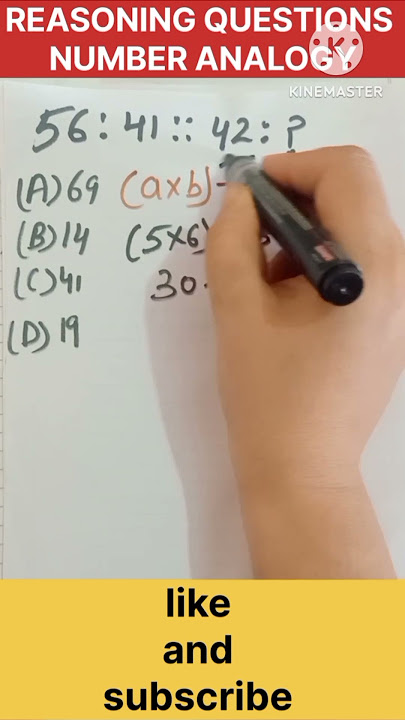 REASONING QUESTIONS
NUMBER ANALOGY
KINEMASTER
56 : 41 :: 42 : ?
(A) 69 (a×b)
(B) 14 (5×6)
(C) 41 30
(D) 19
like
and
subscribe